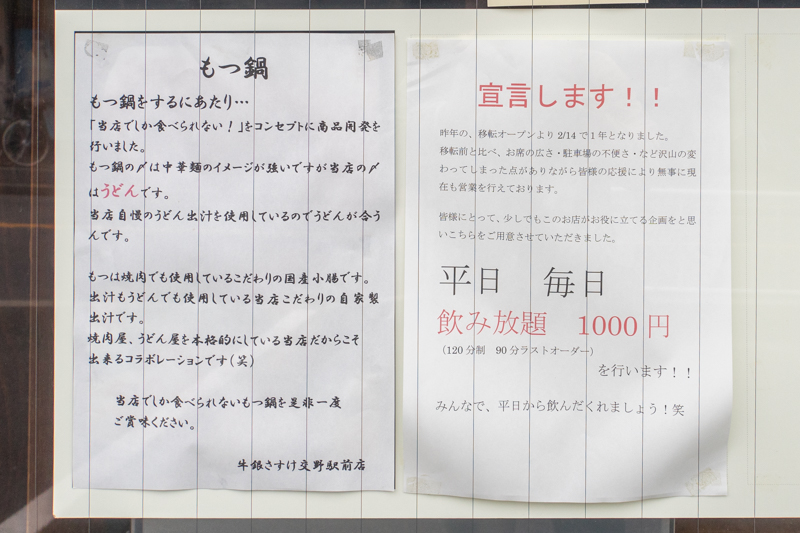 もつ鍋
もつ鍋をするにあたり…
「当店でしか食べられない！」をコンセプトに商品開発を
行いました。
もつ鍋の〆は中華麺のイメージが強いですが当店の〆
はうどんです。
当店自慢のうどん出汁を使用しているのでうどんが合う
んです。
もつは焼肉でも使用しているこだわりの国産小腸です。
出汁もうどんでも使用している当店こだわりの自家製
出汁です。
焼肉屋、うどん屋を本格的にしている当店だからこそ
出来るコラボレーションです（笑）
当店でしか食べられないもつ鍋を是非一度
ご賞味ください。
牛銀さすけ交野駅前店
宣言します！！
昨年の、移転オープンより 2/14 で 1 年となりました。
移転前と比べ、お席の広さ・駐車場の不便さ・など沢山の変
わってしまった点がありながら皆様の応援により無事に現
在も営業を行えております。
皆様にとって、少しでもこのお店がお役に立てる企画をと思
いこちらをご用意させていただきました。
平日　毎日
飲み放題　1000 円
（120 分制　90 分ラストオーダー）
を行います！！
みんなで、平日から飲んだくれましょう！笑